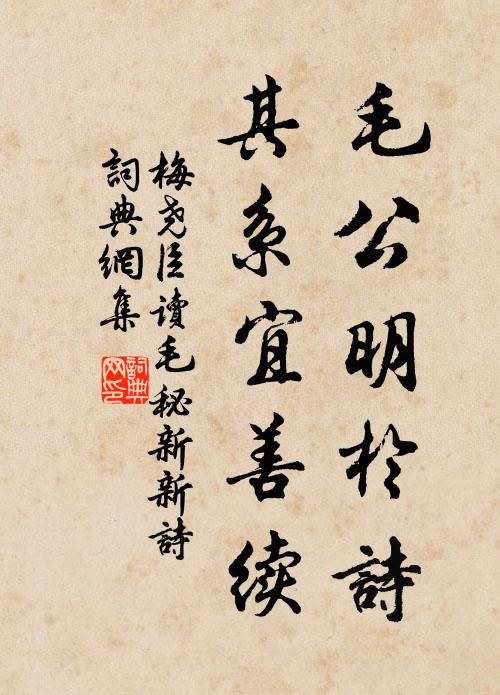 毛公明於詩
其系宜善续
梅尧臣读毛秘新新詩
詞典網集
詞典网印